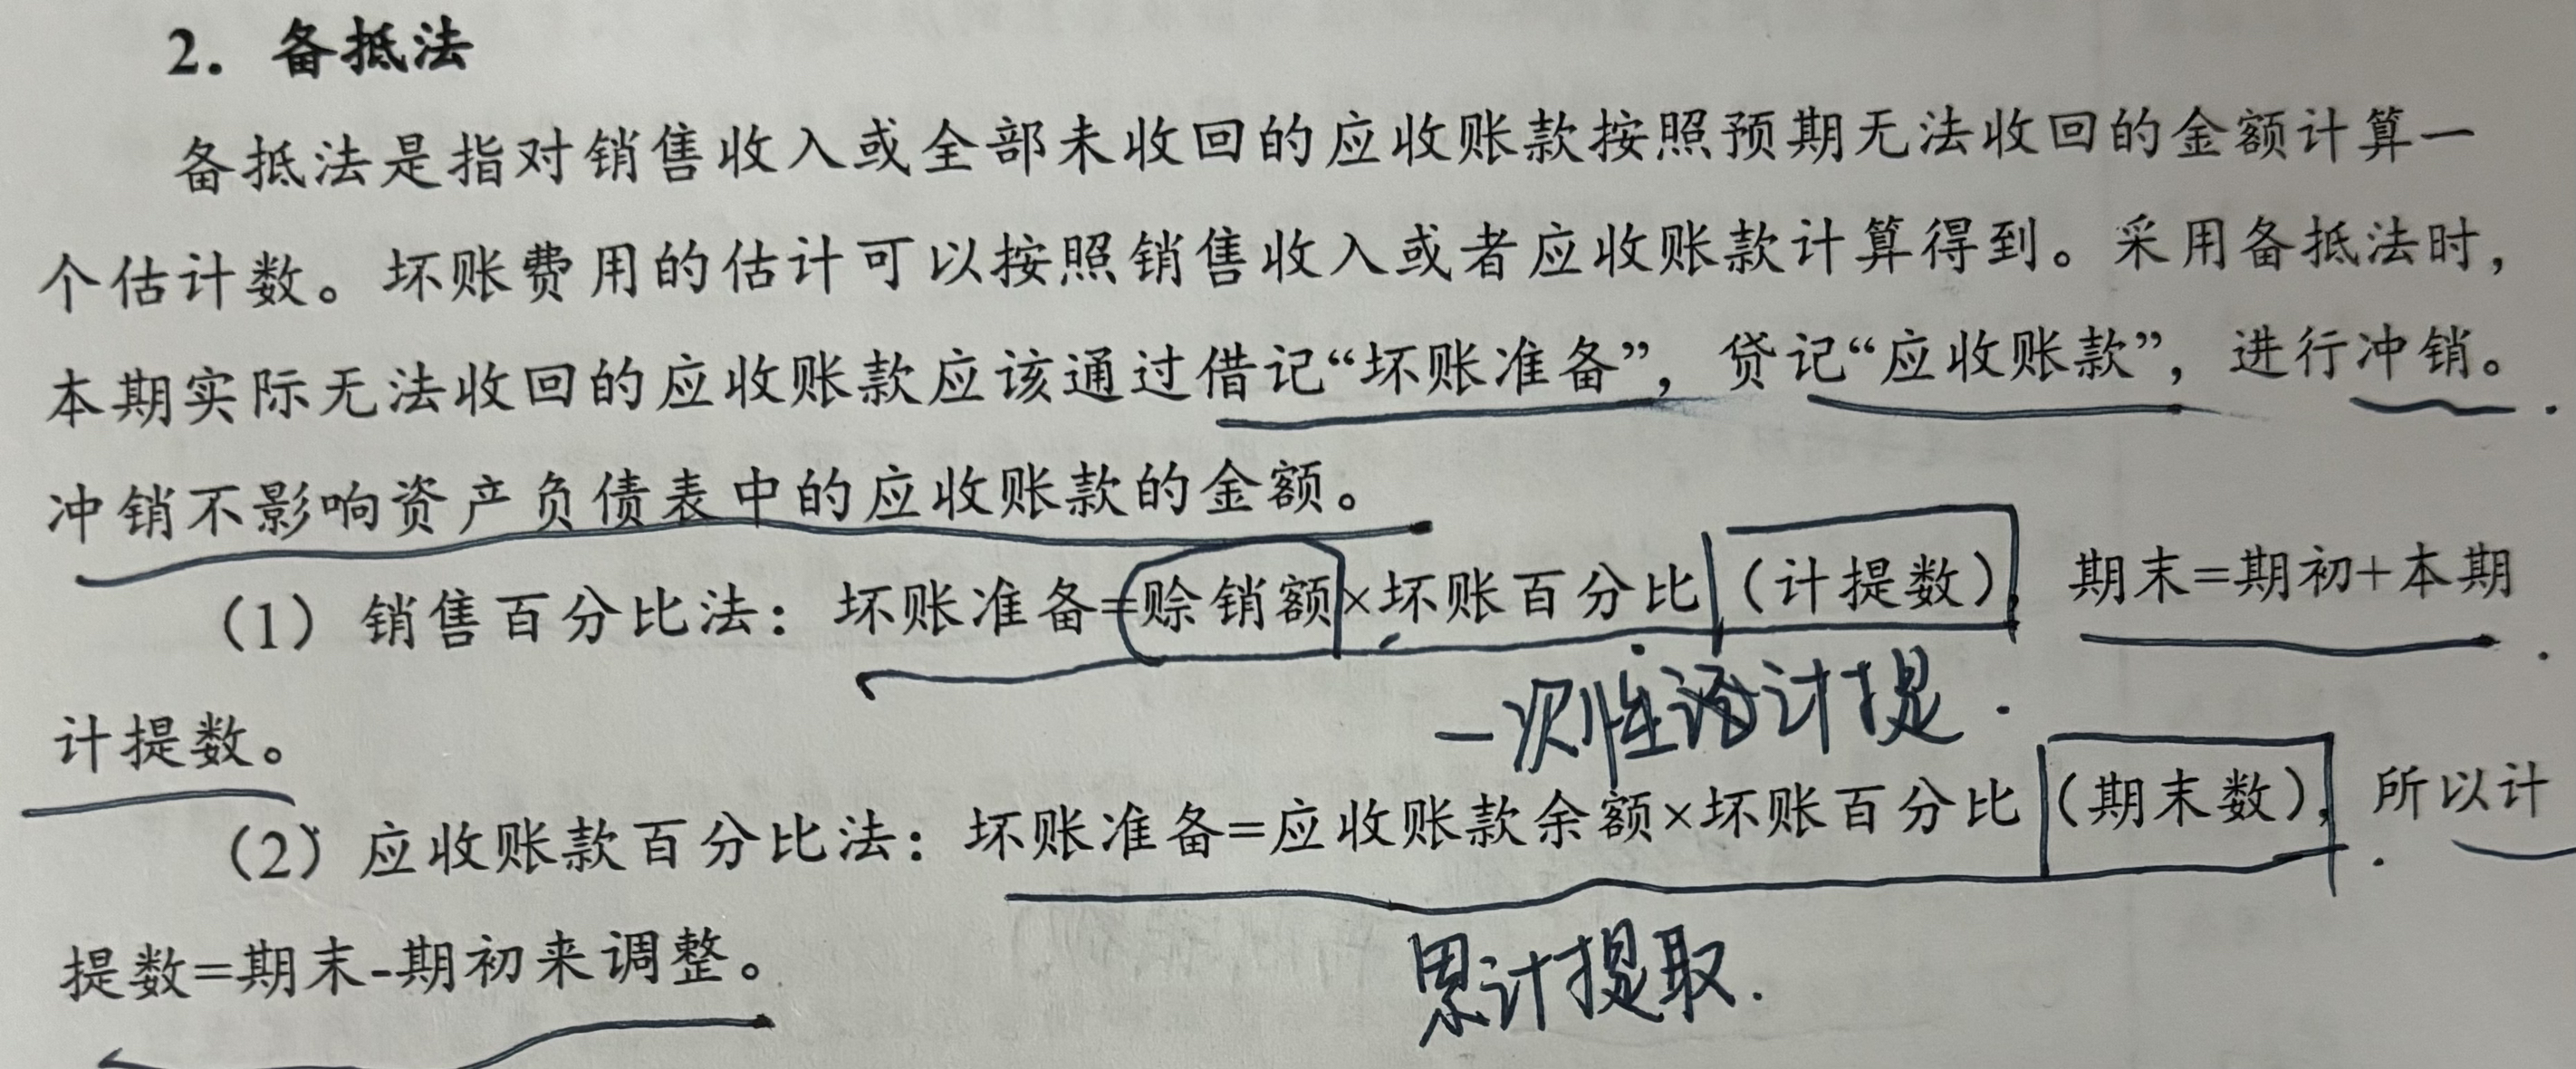 2. 备抵法
备抵法是指对销售收入或全部未收回的应收账款按照预期无法收回的金额计算一
个估计数。坏账费用的估计可以按照销售收入或者应收账款计算得到。采用备抵法时，
本期实际无法收回的应收账款应该通过借记“坏账准备”，贷记“应收账款”，进行冲销。
冲销不影响资产负债表中的应收账款的金额。
（1）销售百分比法：坏账准备=赊销额×坏账百分比（计提数），期末=期初+本期
一次性计提.
计提数。
（2）应收账款百分比法：坏账准备=应收账款余额×坏账百分比（期末数），所以计
提数=期末-期初来调整。
累计提取.